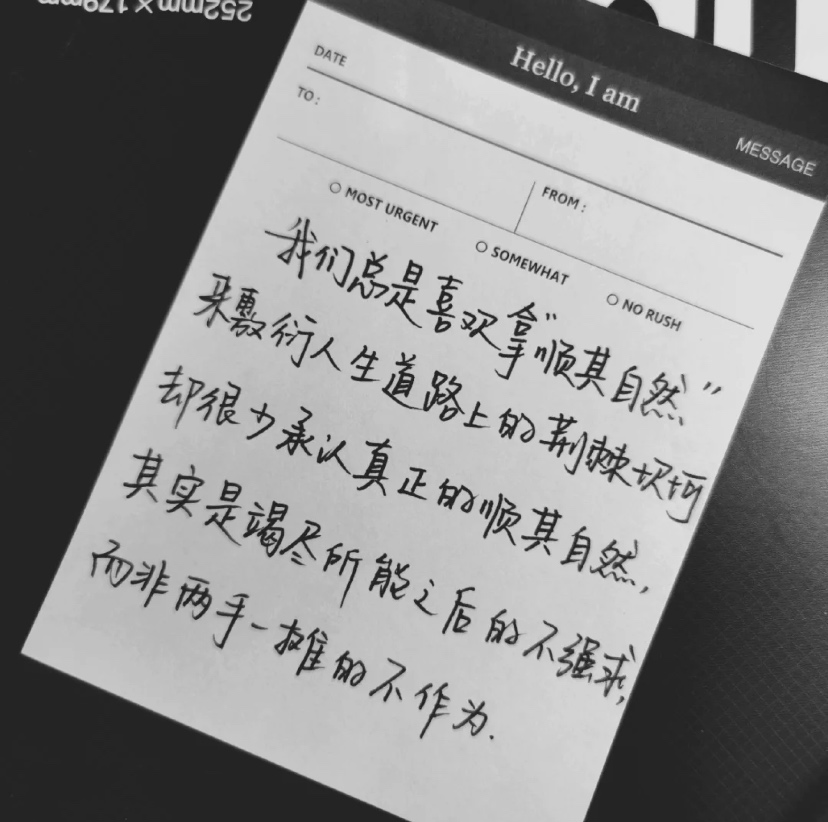 252mm×179mm
Hello, I am
MESSAGE
DATE
TO:
FROM:
MOST URGENT
SOMEWHAT
NO RUSH
我们总是喜欢拿“顺其自然”
来敷衍人生道路上的荆棘坎坷
却很少承认真正的顺其自然,
其实是竭尽所能之后的不强求,
而非两手一摊的不作为.